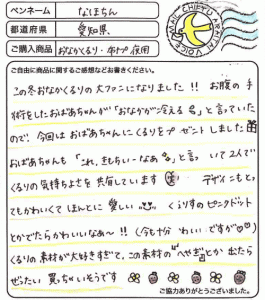 ペンネーム なほちん
都道府県 愛知県
ご購入商品 おなかくるり・年中使用
MAIL CHIEPPU ARAHAN VOICE
ご自由に商品に関するご感想などお書きください。
この冬おなかくるりの大ファンになりました!! お腹の手
術をしたおばあちゃんが「おなかが冷える」と言っていた
ので、今回はおばあちゃんにくるりをプレゼントしました
おばあちゃんも「これ、きもちいーなあ」と言っていて2人で
くるりの気持ちよさを共有しています デザインもとっ
てもかわいくてほんとに愛しい くるりすのピンクドット
とかでたらかわいいなぁ〜!!(今も十分かわいいですが)
くるりの素材が大好きすぎて、この素材の"へやぎ"とか出たら
ぜったい買っちゃいそうです
ご協力ありがとうございました。